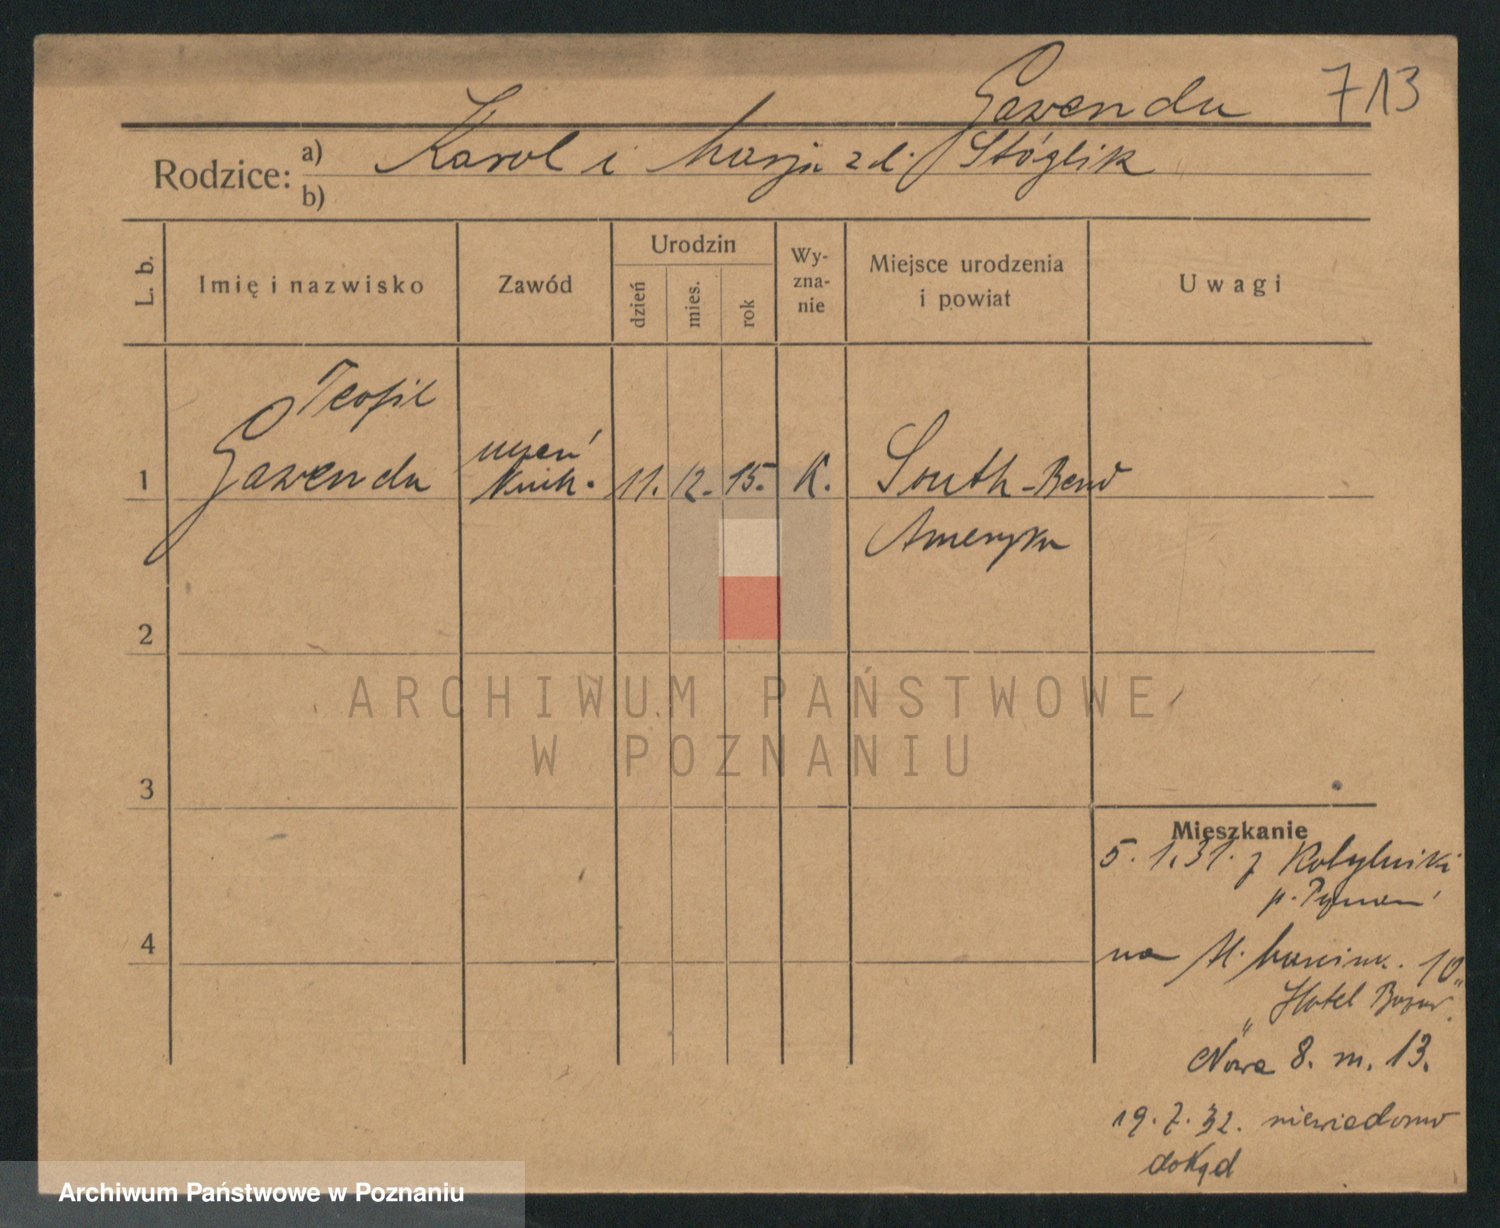 Gawenda 713
Rodzice: a) Karol i Marja zd. Stóglik
b)
L. b.
Imię i nazwisko
Zawód
Urodzin
dzień
mies.
rok
Wy-
zna-
nie
Miejsce urodzenia
i powiat
Uwagi
Teofil
uczeń
1 Gawenda kuch. 11. 12. 15. K. South-Bend
Ameryka
2
ARCHIWUM PAŃSTWOWE
W POZNANIU
3
Mieszkanie
5. 1. 31. z Kobylniki
p.
4
na M. Marcink. 10
"Hotel Bazar"
Nowa 8. m. 13.
19. 7. 32. niewiadomo
dokąd
Archiwum Państwowe w Poznaniu